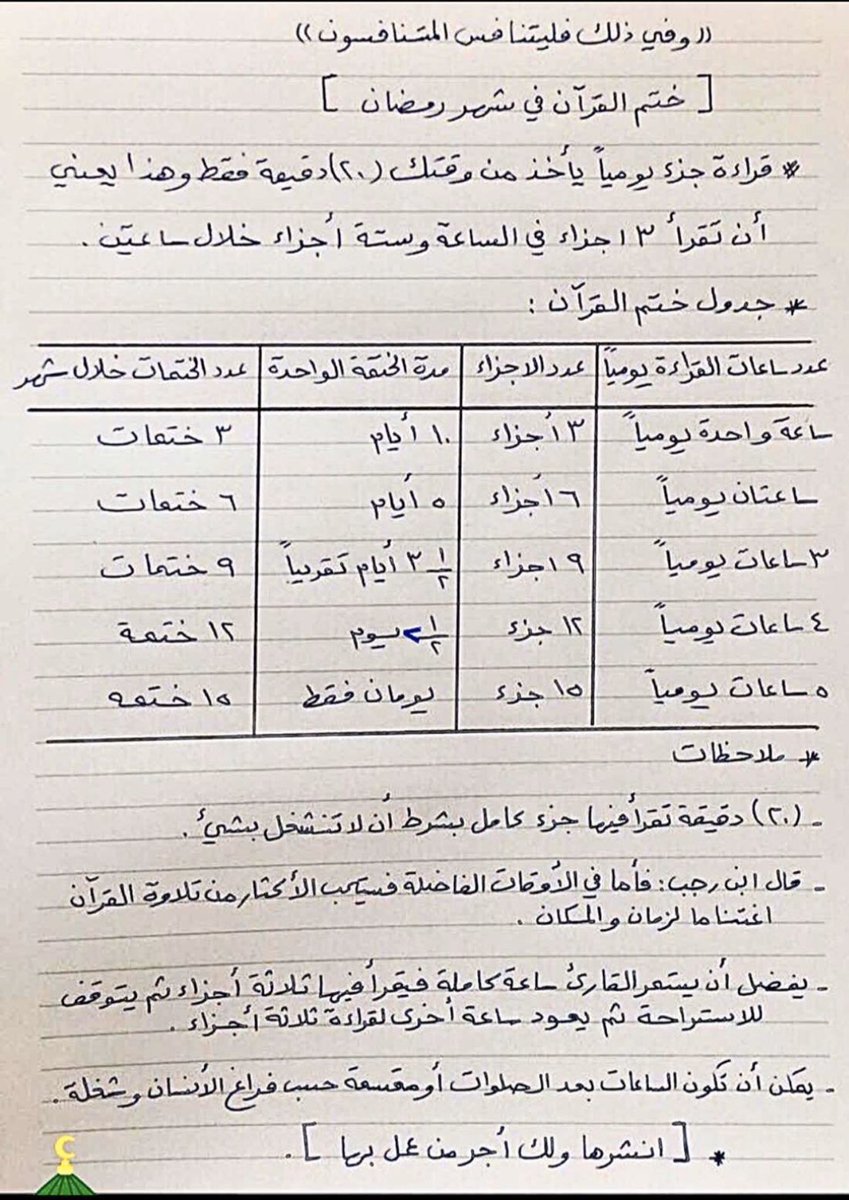 ((وفي ذلك فليتنافس المتنافسون))
[ ختم القرآن في شهر رمضان ]
* قراءة جزء يومياً يأخذ من وقتك (٢٠) دقيقة فقط وهذا يعني
أن تقرأ ٣ اجزاء في الساعة وستة أجزاء خلال ساعتين .
* جدول ختم القرآن :
عدد ساعات القراءة يومياً عدد الاجزاء مدة الختمة الواحدة عدد الختمات خلال شهر
ساعة واحدة يومياً ٣ أجزاء ١٠ أيام ٣ ختمات
ساعتان يومياً ٦ أجزاء ٥ أيام ٦ ختمات
٣ ساعات يومياً ٩ اجزاء ٣ ١/٢ أيام تقريباً ٩ ختمات
٤ ساعات يومياً ١٢ جزء ٢ ١/٢ يوم ١٢ ختمة
٥ ساعات يومياً ١٥ جزء يومان فقط ١٥ ختمه
* ملاحظات
- (٢٠) دقيقة تقرأ فيها جزء كامل بشرط أن لا تنشغل بشيئ .
- قال ابن رجب : فأما في الأوقات الفاضلة فسيتحب الأكثار من تلاوة القرآن
اغتناما لزمان والمكان .
- يفضل أن يستمر القارئ ساعة كاملة فيقرأ فيها ثلاثة أجزاء ثم يتوقف
للاستراحة ثم يعود ساعة أخرى لقراءة ثلاثة أجزاء .
- يمكن أن تكون الساعات بعد الصلوات أو مقسمة حسب فراغ الأنسان وشغلة .
* [ انشرها ولك أجر من عمل بها ] .